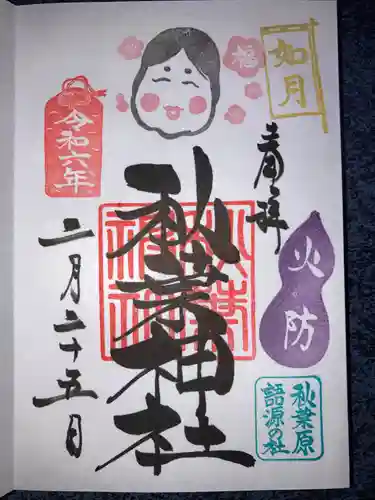 如月
福
奉拝
火防
秋葉神社
秋葉神社
秋葉原
語源の社
令和六年
二月二十五日